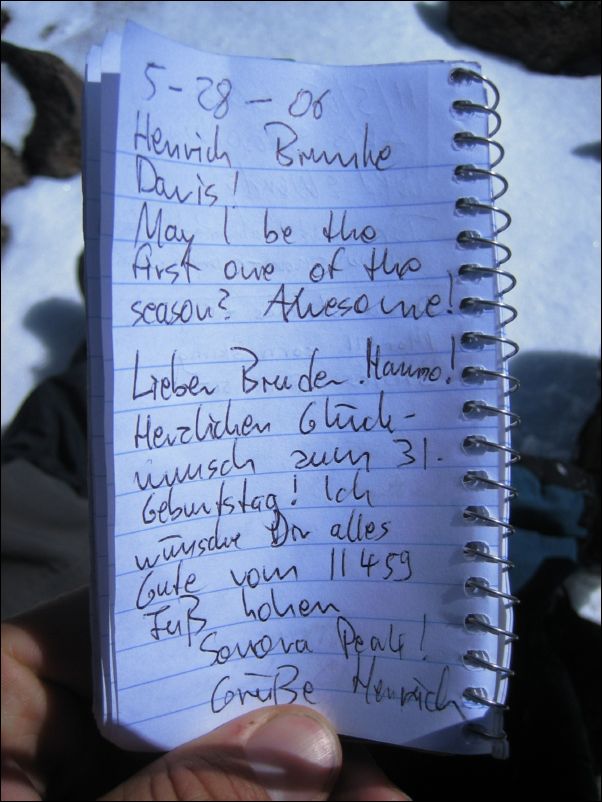 5-28-06
Henrich Brunke
Davis!
May I be the
first one of the
season? Awesome!
Lieber Bruder Hanno!
Herzlichen Glück-
wunsch zum 31.
Geburtstag! Ich
wünsche Dir alles
Gute vom 11459
Fuß hohen
Sonora Peak!
Grüße Henrich